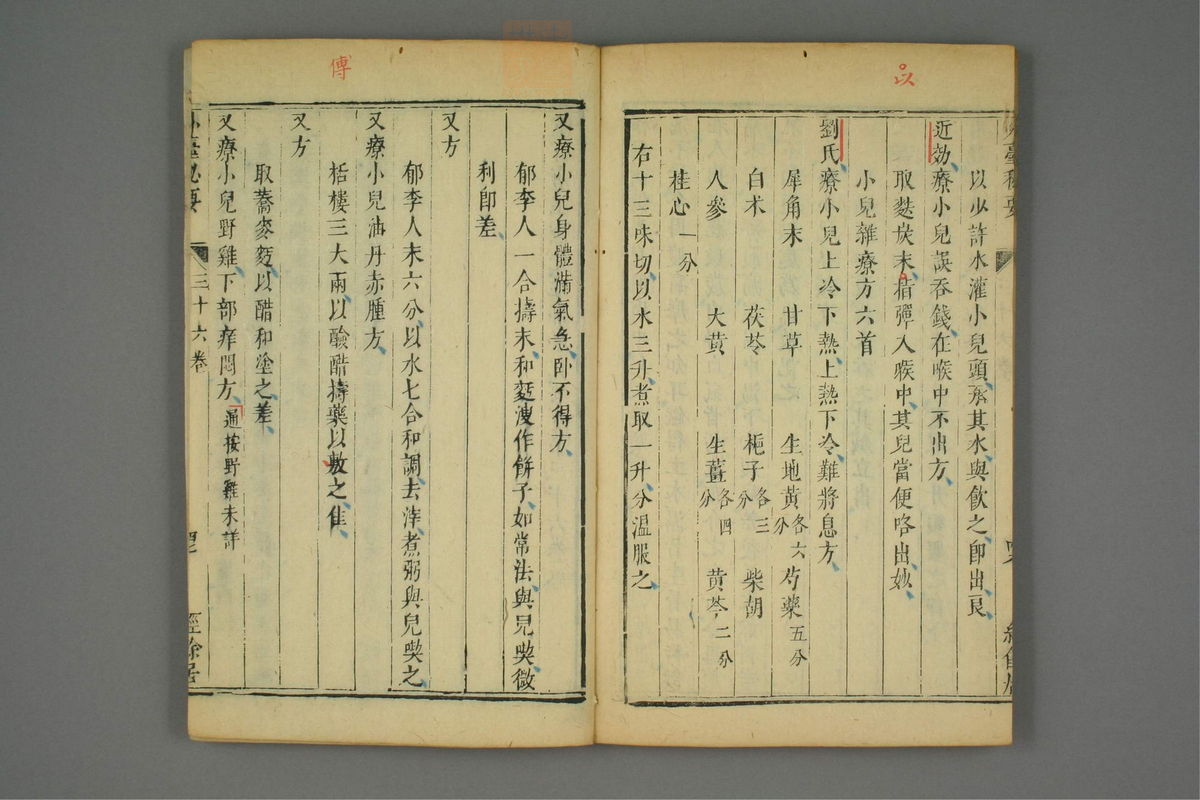 以
以少許水灌小兒頭承其水與飲之即出良
近効療小兒誤吞錢在喉中不出方
取麩炭末指彈入喉中其兒當便咯出妙
小兒雜療方六首
劉氏療小兒上冷下熱上熱下冷難將息方
犀角末 甘草 生地黃各六分 芍藥五分
白朮 茯苓 梔子各三分 柴胡
人參 大黃 生薑各四分 黃芩二分
桂心一分
右十三味切以水三升煮取一升分溫服之
傳
又療小兒身體滿氣急卧不得方
郁李人一合擣末和麪溲作餅子如常法與兒喫微
利即差
又方
郁李人末六分以水七合和調去滓煮粥與兒喫之
又療小兒油丹赤腫方
栝樓三大兩以釅醋擣藥以敷之佳
又方
取蕎麥麪以醋和塗之差
又療小兒野雞下部痒悶方通按野雞未詳
三十六卷
經餘居